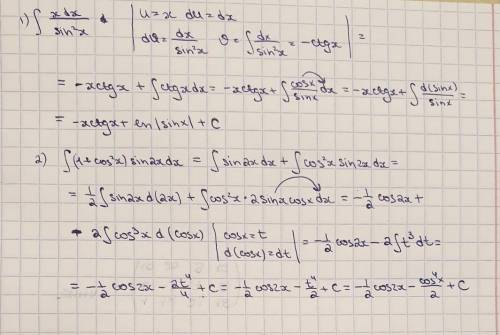 1) ∫ x dx / sin²x | u = x du = dx
dϑ = dx / sin²x ϑ = ∫ dx / sin²x = -ctgx | =
= -xctgx + ∫ctgxdx = -xctgx + ∫ cosx / sinx dx = -xctgx + ∫ d(sinx) / sinx =
= -xctgx + ln|sinx| + C
2) ∫(1+cos²x) sin2xdx = ∫sin2xdx + ∫cos²x sin2xdx =
= 1/2 ∫sin2xd(2x) + ∫cos²x·2sinxcosxdx = -1/2 cos2x +
- 2∫cos³x d(cosx) | cosx=t d(cosx)=dt | = -1/2 cos2x - 2∫t³dt =
= -1/2 cos2x - 2t⁴/4 + C = -1/2 cos2x - t⁴/2 + C = -1/2 cos2x - cos⁴x/2 + C